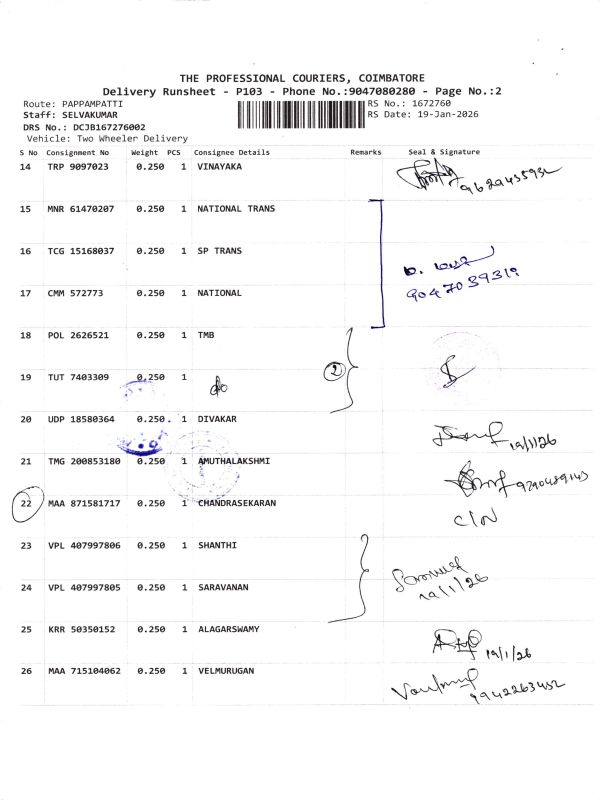 THE PROFESSIONAL COURIERS, COIMBATORE
Delivery Runsheet - P103 - Phone No.:9047080280 - Page No.:2
Route: PAPPAMPATTI
RS No.: 1672760
Staff: SELVAKUMAR
RS Date: 19-Jan-2026
DRS No.: DCJB167276002
Vehicle: Two Wheeler Delivery
S No Consignment No Weight PCS Consignee Details Remarks Seal & Signature
14 TRP 9097023 0.250 1 VINAYAKA
15 MNR 61470207 0.250 1 NATIONAL TRANS
16 TCG 15168037 0.250 1 SP TRANS
17 CMM 572773 0.250 1 NATIONAL
18 POL 2626521 0.250 1 TMB
2
19 TUT 7403309 0.250 1 do
20 UDP 18580364 0.250 1 DIVAKAR
19/1/26
21 TMG 200853180 0.250 1 AMUTHALAKSHMI
22 MAA 871581717 0.250 1 CHANDRASEKARAN
C/N
23 VPL 407997806 0.250 1 SHANTHI
19/1/26
24 VPL 407997805 0.250 1 SARAVANAN
25 KRR 50350152 0.250 1 ALAGARSWAMY
19/1/26
26 MAA 715104062 0.250 1 VELMURUGAN
9942263452